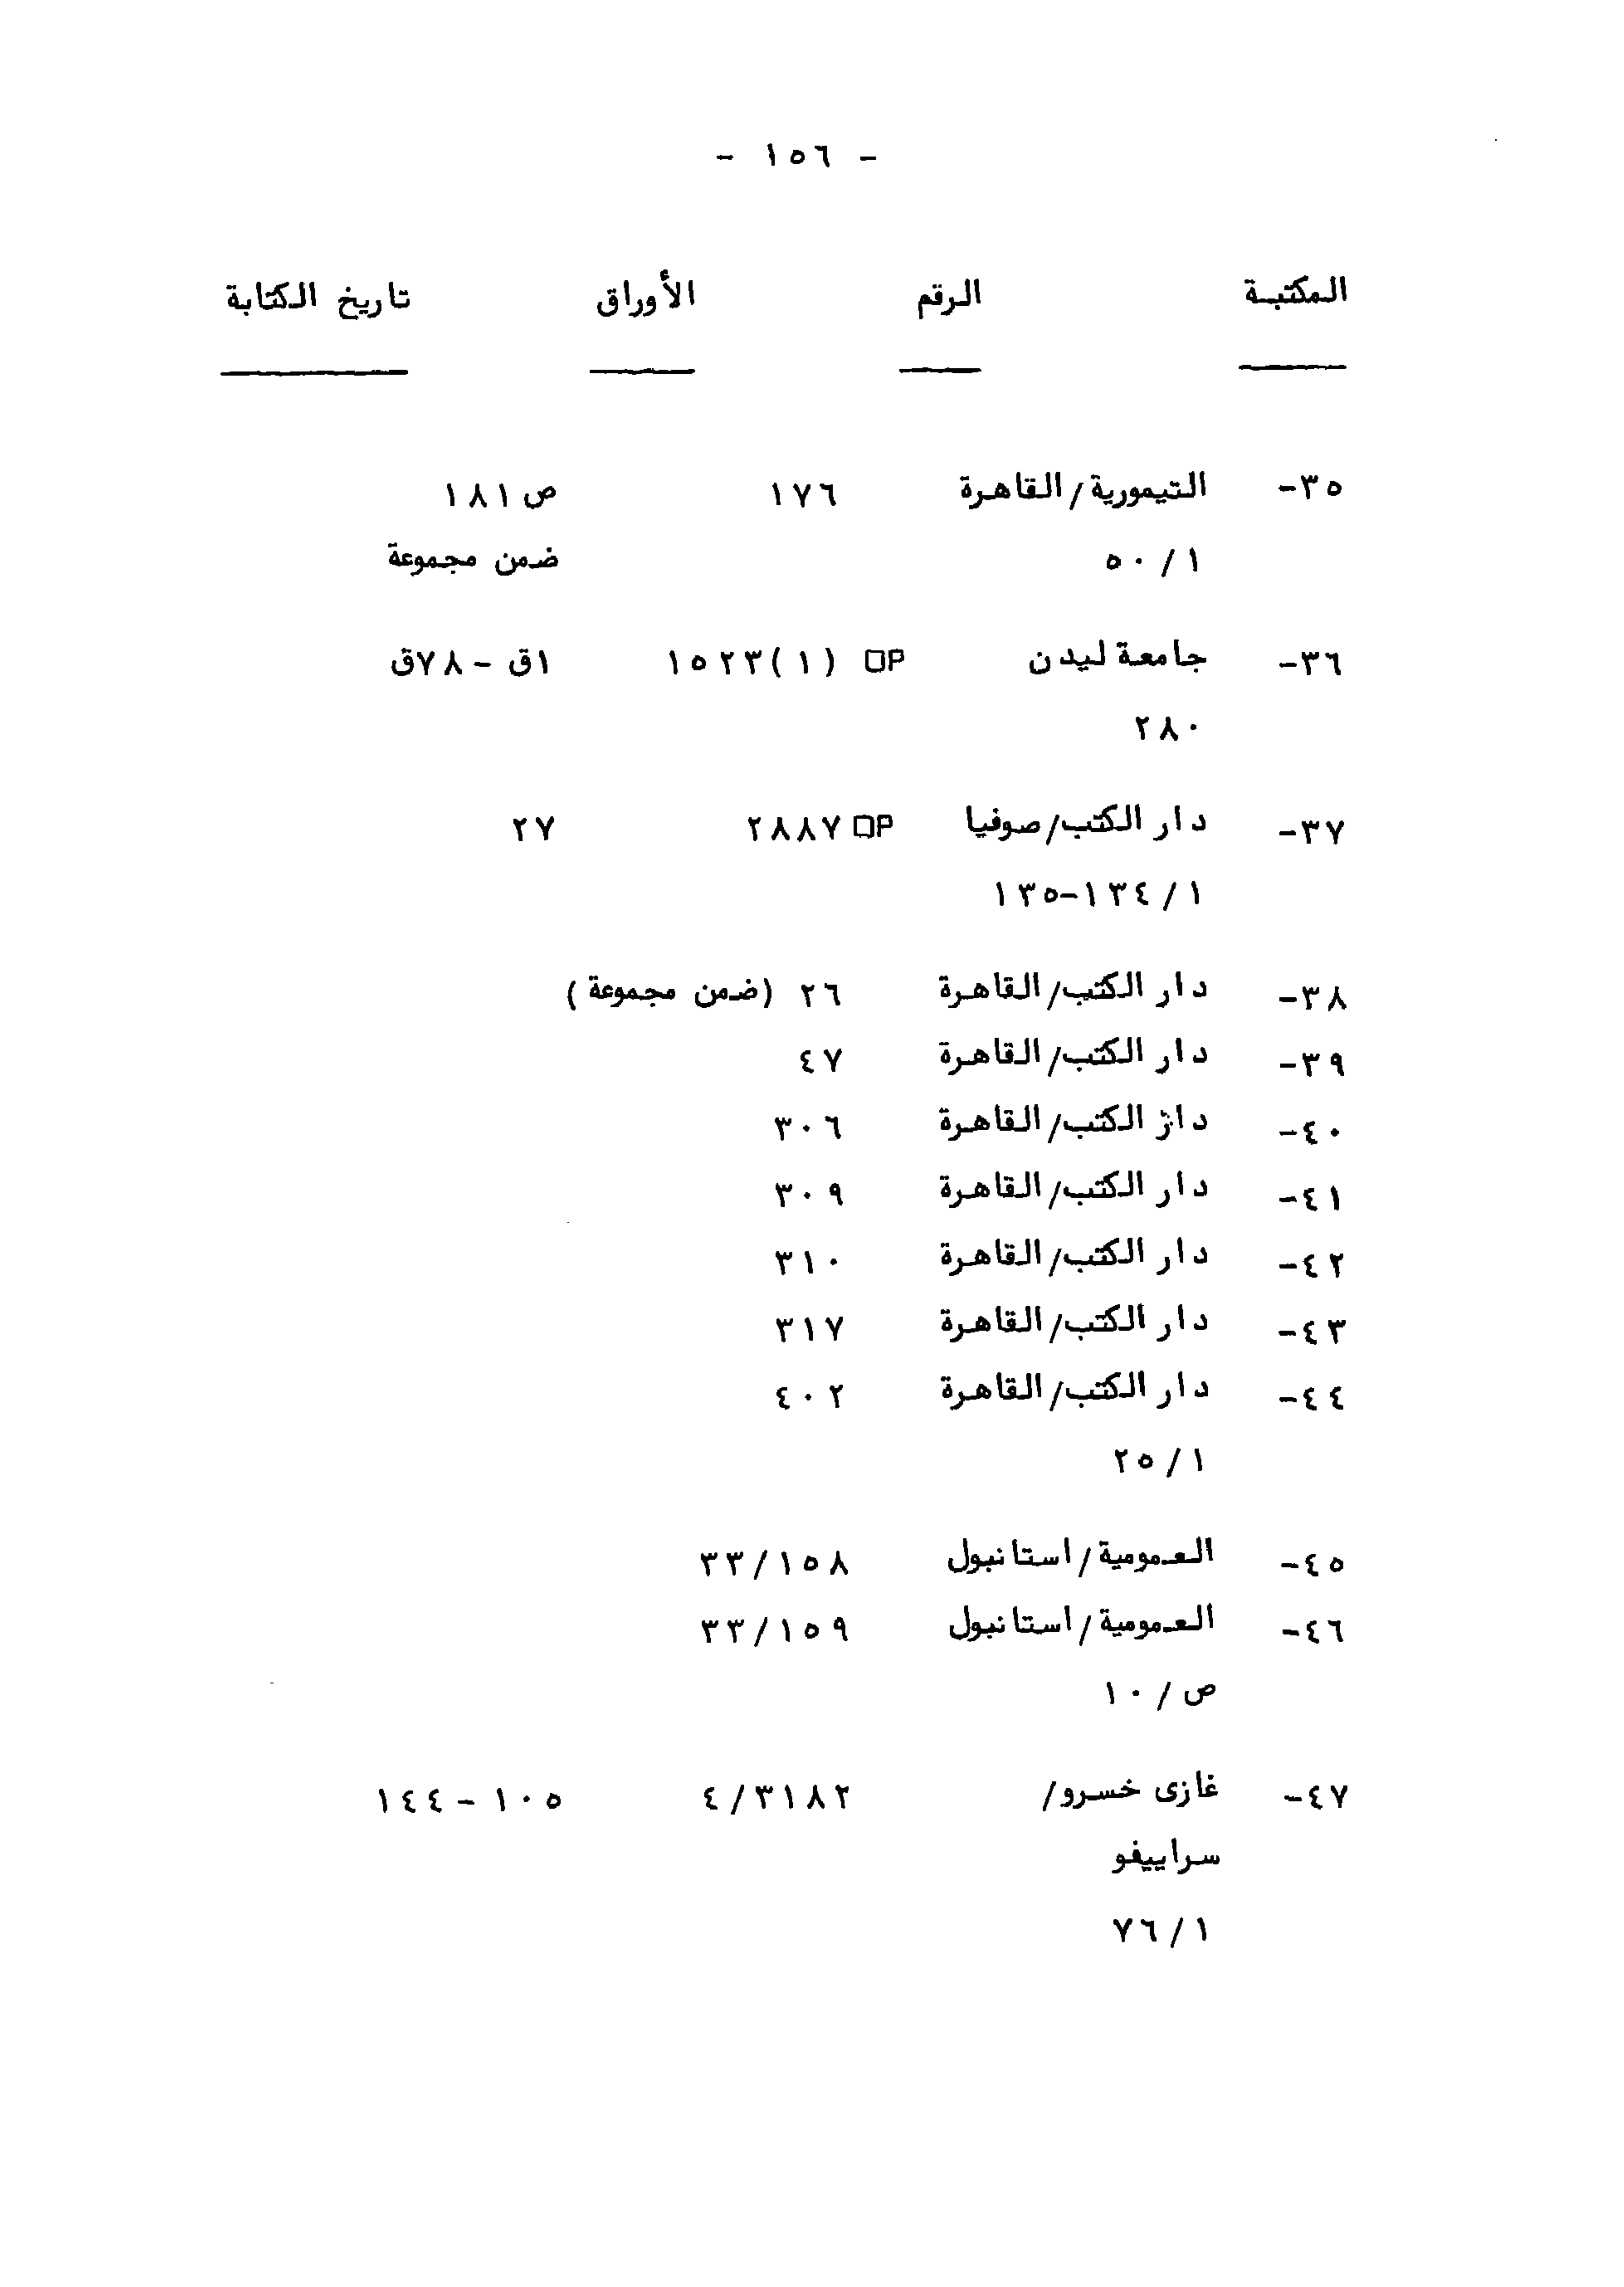 - ١٥٦ -
المكتبة الرقم الأوراق تاريخ الكتابة
٣٥- التيمورية/القاهرة ١٧٦ ص ١٨١
١/٥٠ ضمن مجموعة
٣٦- جامعة ليدن OP ١٥٢٣(١) ١ق - ٧٨ق
٢٨٠
٣٧- دار الكتب/صوفيا OP ٢٨٨٧ ٢٧
١/١٣٤-١٣٥
٣٨- دار الكتب/القاهرة ٢٦ (ضمن مجموعة)
٣٩- دار الكتب/القاهرة ٤٧
٤٠- دار الكتب/القاهرة ٣٠٦
٤١- دار الكتب/القاهرة ٣٠٩
٤٢- دار الكتب/القاهرة ٣١٠
٤٣- دار الكتب/القاهرة ٣١٧
٤٤- دار الكتب/القاهرة ٤٠٢
١/٢٥
٤٥- العمومية/استانبول ٣٣/١٥٨
٤٦- العمومية/استانبول ٣٣/١٥٩
ص/١٠
٤٧- غازى خسرو/ ٤/٣١٨٢ ١٠٥ - ١٤٤
سراييفو
١/٧٦